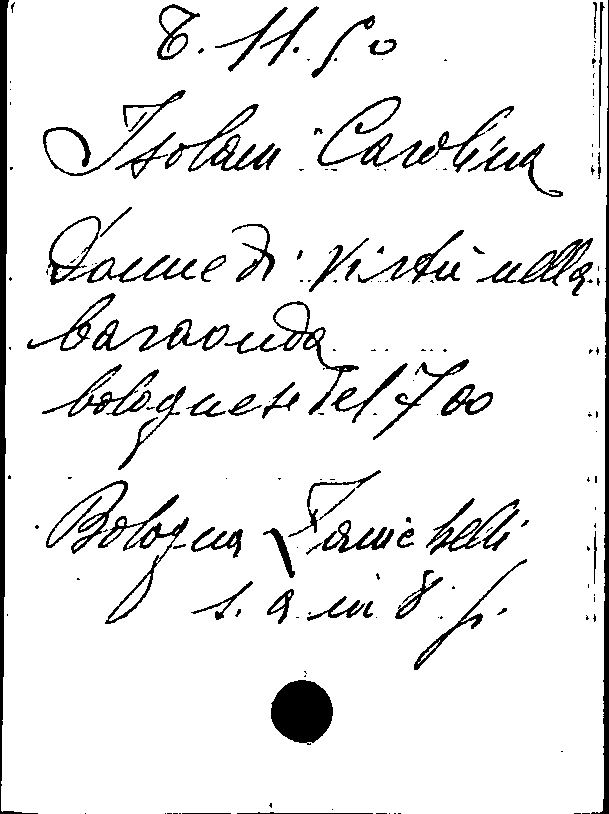 8. 11. 50
Isolani Carolina
Donne di virtù nella
baraonda
bolognese del 700
Bologna Zanichelli
s. a in 8 p.